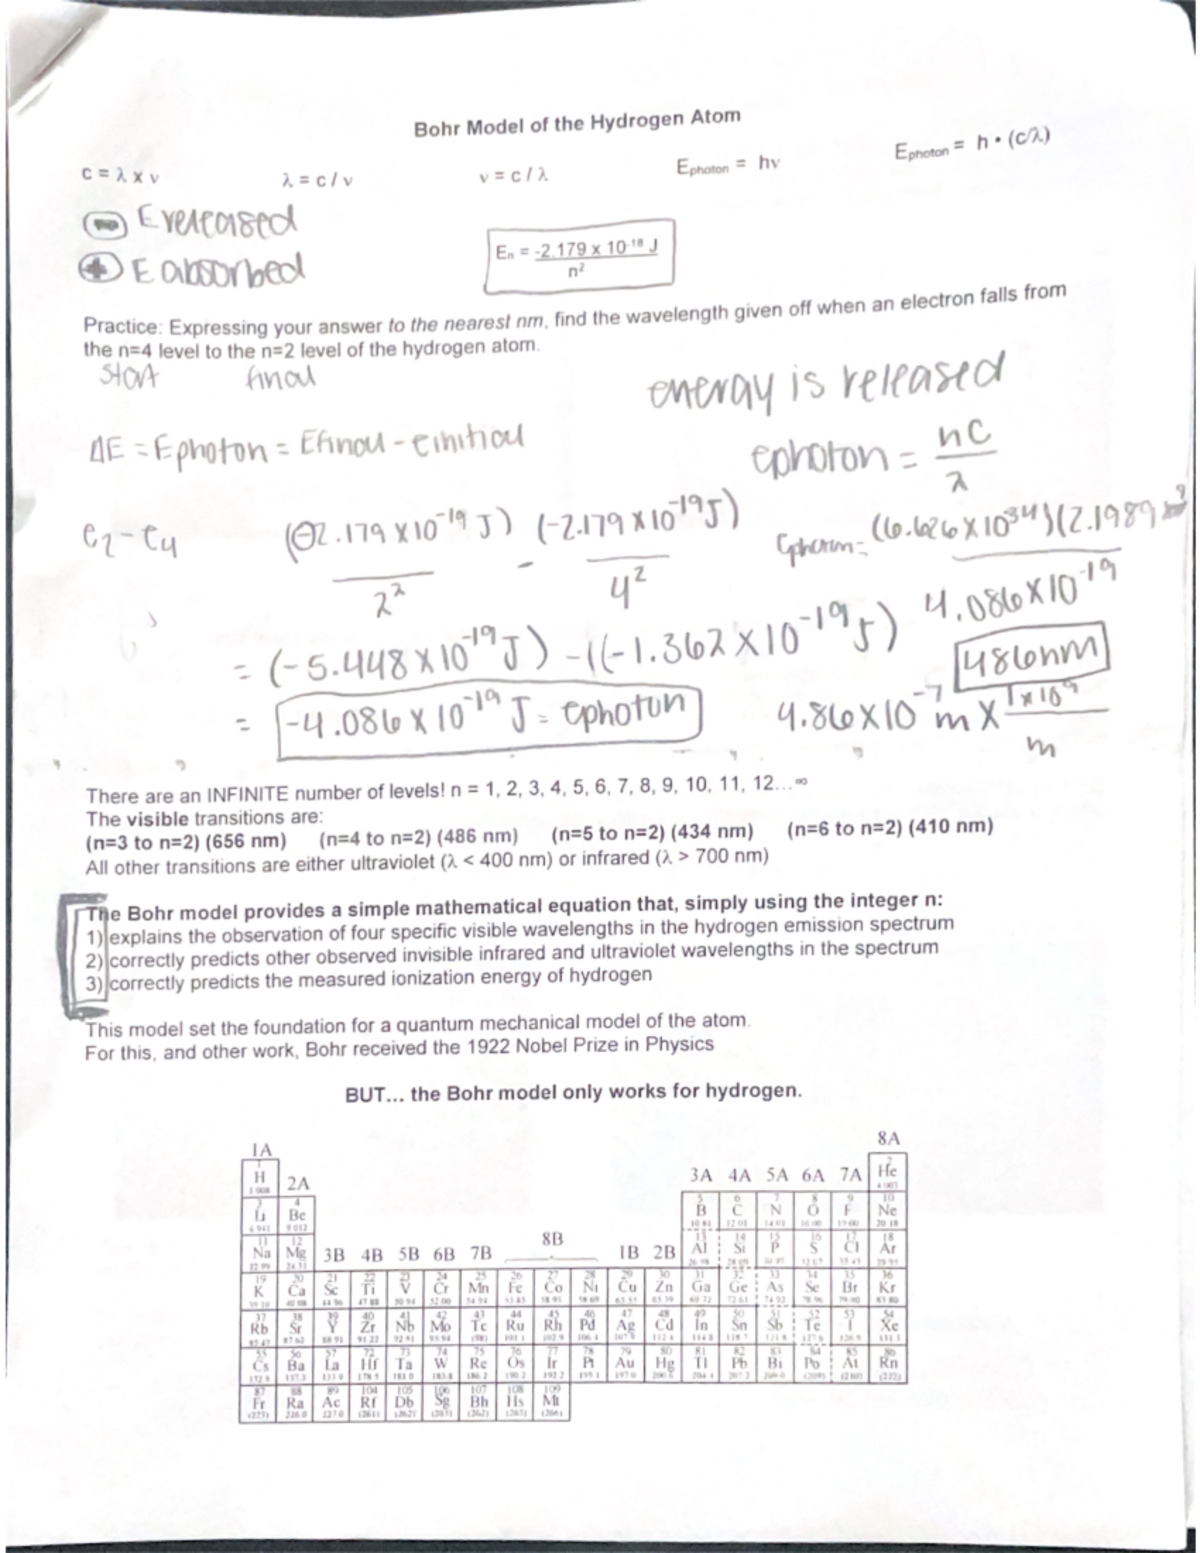 Bohr Model of the Hydrogen Atom
c = λ x ν λ = c / ν ν = c / λ Ephoton = hν Ephoton = h • (c/λ)
⊖ E released
⊕ E absorbed
En = -2.179 x 10-18 J
n2
Practice: Expressing your answer to the nearest nm, find the wavelength given off when an electron falls from
the n=4 level to the n=2 level of the hydrogen atom.
start final
energy is released
ΔE = Ephoton = Efinal - einitial
ephoton = hc
λ
e2 - e4 (-2.179 x 10-19 J) - (-2.179 x 10-19 J)
22 42
(6.626 x 1034)(2.1989 x
4.086 x 10-19
= (-5.448 x 10-19 J) - (-1.362 x 10-19 J)
486nm
= -4.086 x 10-19 J = ephoton
4.86 x 10-7 m x 1 x 109
m
There are an INFINITE number of levels! n = 1, 2, 3, 4, 5, 6, 7, 8, 9, 10, 11, 12…∞
The visible transitions are:
(n=3 to n=2) (656 nm) (n=4 to n=2) (486 nm) (n=5 to n=2) (434 nm) (n=6 to n=2) (410 nm)
All other transitions are either ultraviolet (λ < 400 nm) or infrared (λ > 700 nm)
The Bohr model provides a simple mathematical equation that, simply using the integer n:
1) explains the observation of four specific visible wavelengths in the hydrogen emission spectrum
2) correctly predicts other observed invisible infrared and ultraviolet wavelengths in the spectrum
3) correctly predicts the measured ionization energy of hydrogen
This model set the foundation for a quantum mechanical model of the atom.
For this, and other work, Bohr received the 1922 Nobel Prize in Physics
BUT… the Bohr model only works for hydrogen.
1A 8A
H 2A 3A 4A 5A 6A 7A He
Li Be B C N O F Ne
Na Mg 3B 4B 5B 6B 7B 8B 1B 2B Al Si P S Cl Ar
K Ca Sc Ti V Cr Mn Fe Co Ni Cu Zn Ga Ge As Se Br Kr
Rb Sr Y Zr Nb Mo Tc Ru Rh Pd Ag Cd In Sn Sb Te I Xe
Cs Ba La Hf Ta W Re Os Ir Pt Au Hg Tl Pb Bi Po At Rn
Fr Ra Ac Rf Db Sg Bh Hs Mt